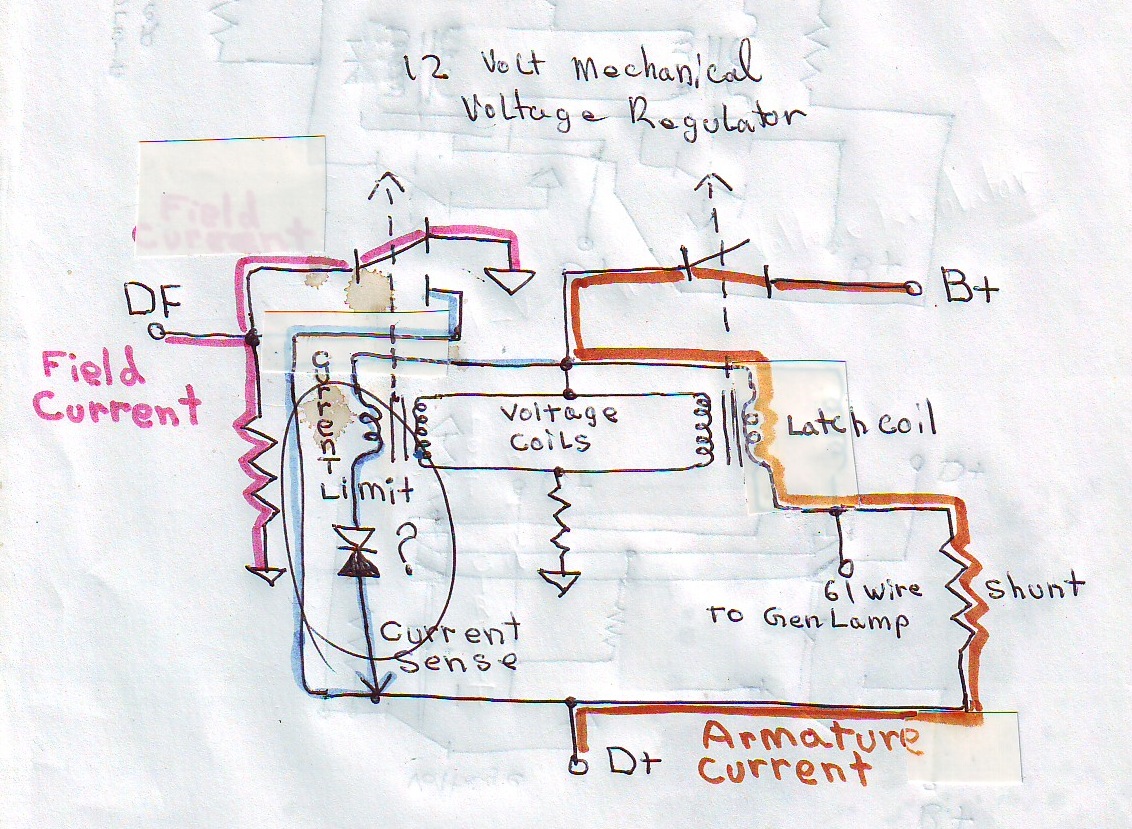 12 Volt Mechanical
Voltage Regulator
Field
Current
DF
B+
Field
Current
Current
Limit
?
Voltage
Coils
Latch coil
61 wire
To Gen Lamp
Shunt
Current
Sense
D+
Armature
Current